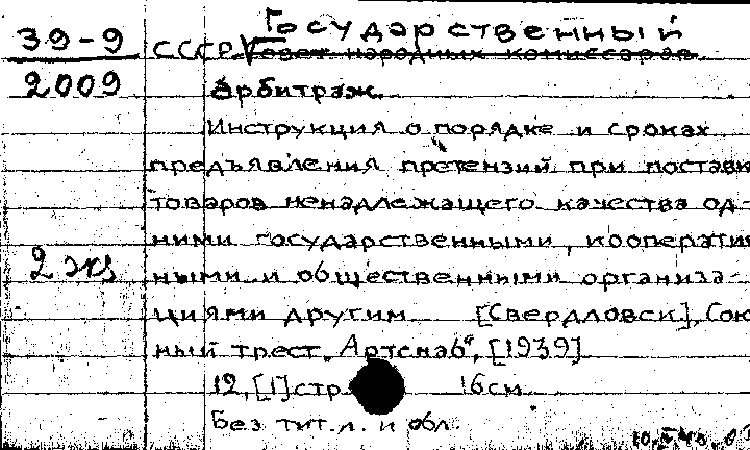 Государственный
39-9 СССР. Совет народных комиссаров.
2009 Арбитраж.
Инструкция о порядке и сроках
предъявления претензий при постав
товаров ненадлежащего качества од-
ними государственными, кооператив
2 экз ными и общественными организа-
циями другим [Свердловск], Сою
ный трест "Артснаб", [1939]
12, [1] стр 16 см
Без тит. л. и обл.